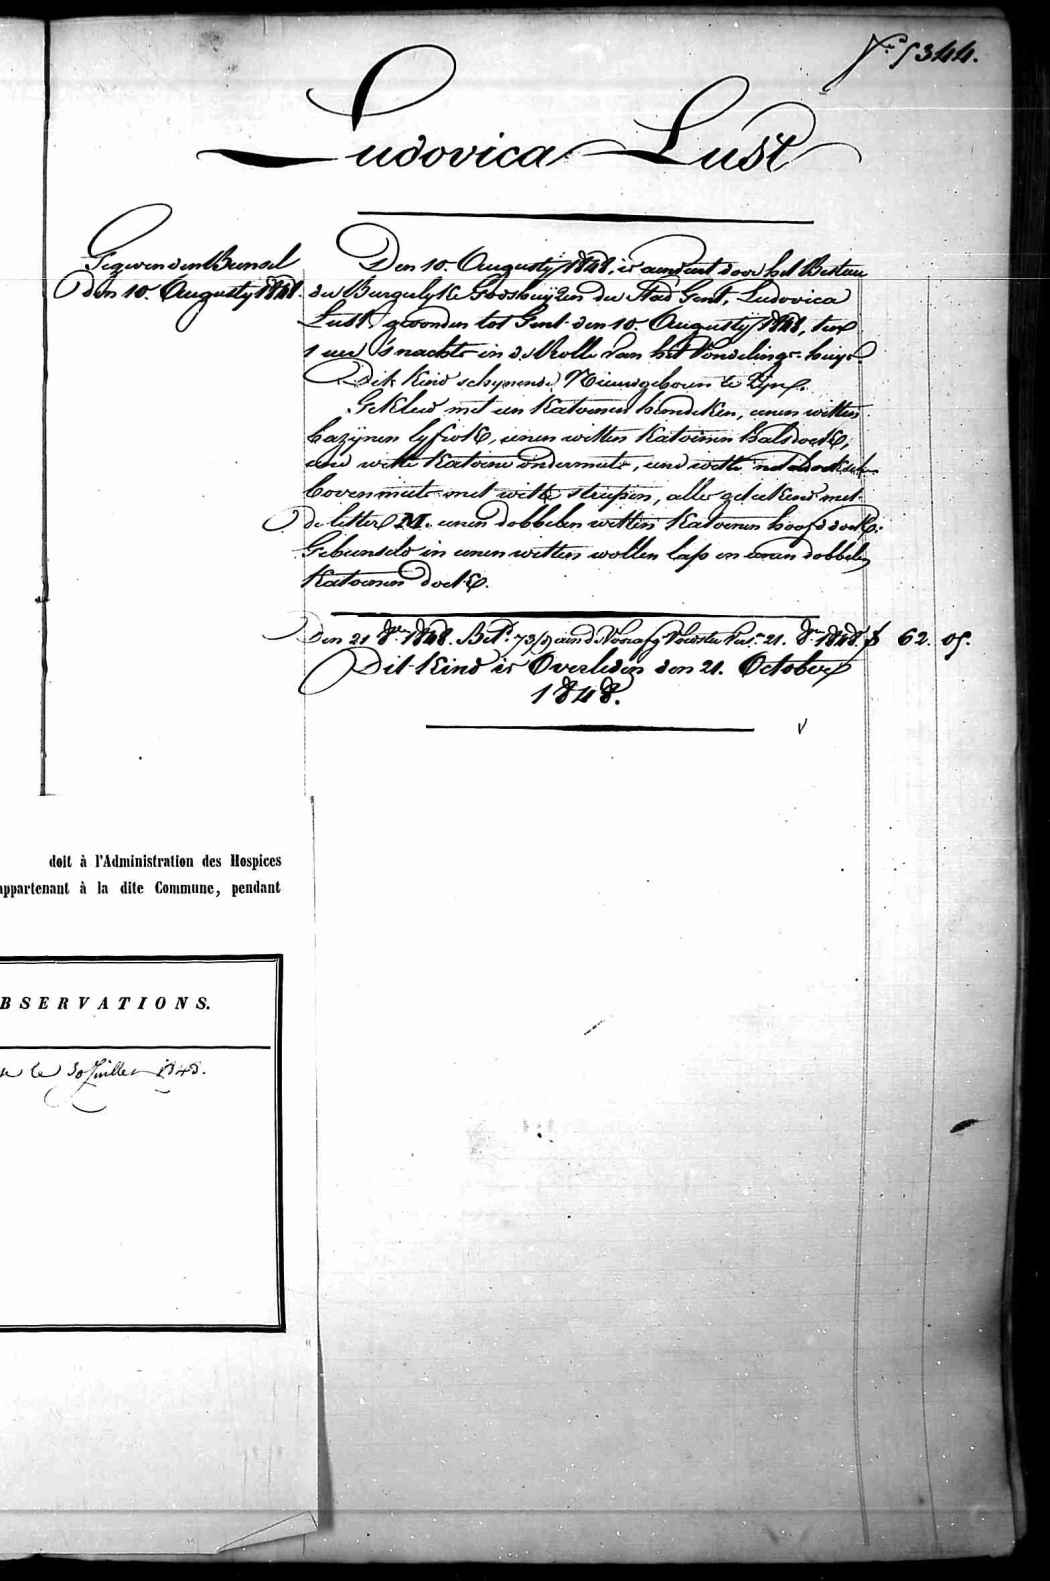 N.º 5344.
Ludovica Lust
Gegeven den Bunsel
den 10. Augusty 1848.
Den 10. Augusty 1848, is aenveert door het Bestuer
der Burgelyke Godshuyzen der Stad Gent, Ludovica
Lust, gevonden tot Gent den 10. Augusty 1848, ten
1 uer 's nachts in de Rolle van het Vondelings-huys.
Dit Kind schynende Nieuwgeboren te zyn.
Gekleed met een Katoenen hemdeken, eenen witten
bazynen lyfrok, eenen witten Katoenen halsdoek,
eene witte Katoene ondermuts, eene witte
bovenmuts met witte strepen, alles geteekend met
de letter M. eenen dobbelen witten Katoenen hoofddoek.
Gebunseld in eenen witten wollen lap en eenen dobbelen
Katoenen doek.
Den 21 8bre 1848. Bet. 73/9 aen de Voorsz. Voedster 21. 8bre 1848. f 62. 05.
Dit Kind is Overleden den 21. October
1848.
doit à l'Administration des Hospices
appartenant à la dite Commune, pendant
BSERVATIONS.
le 30 Juillet 1848.